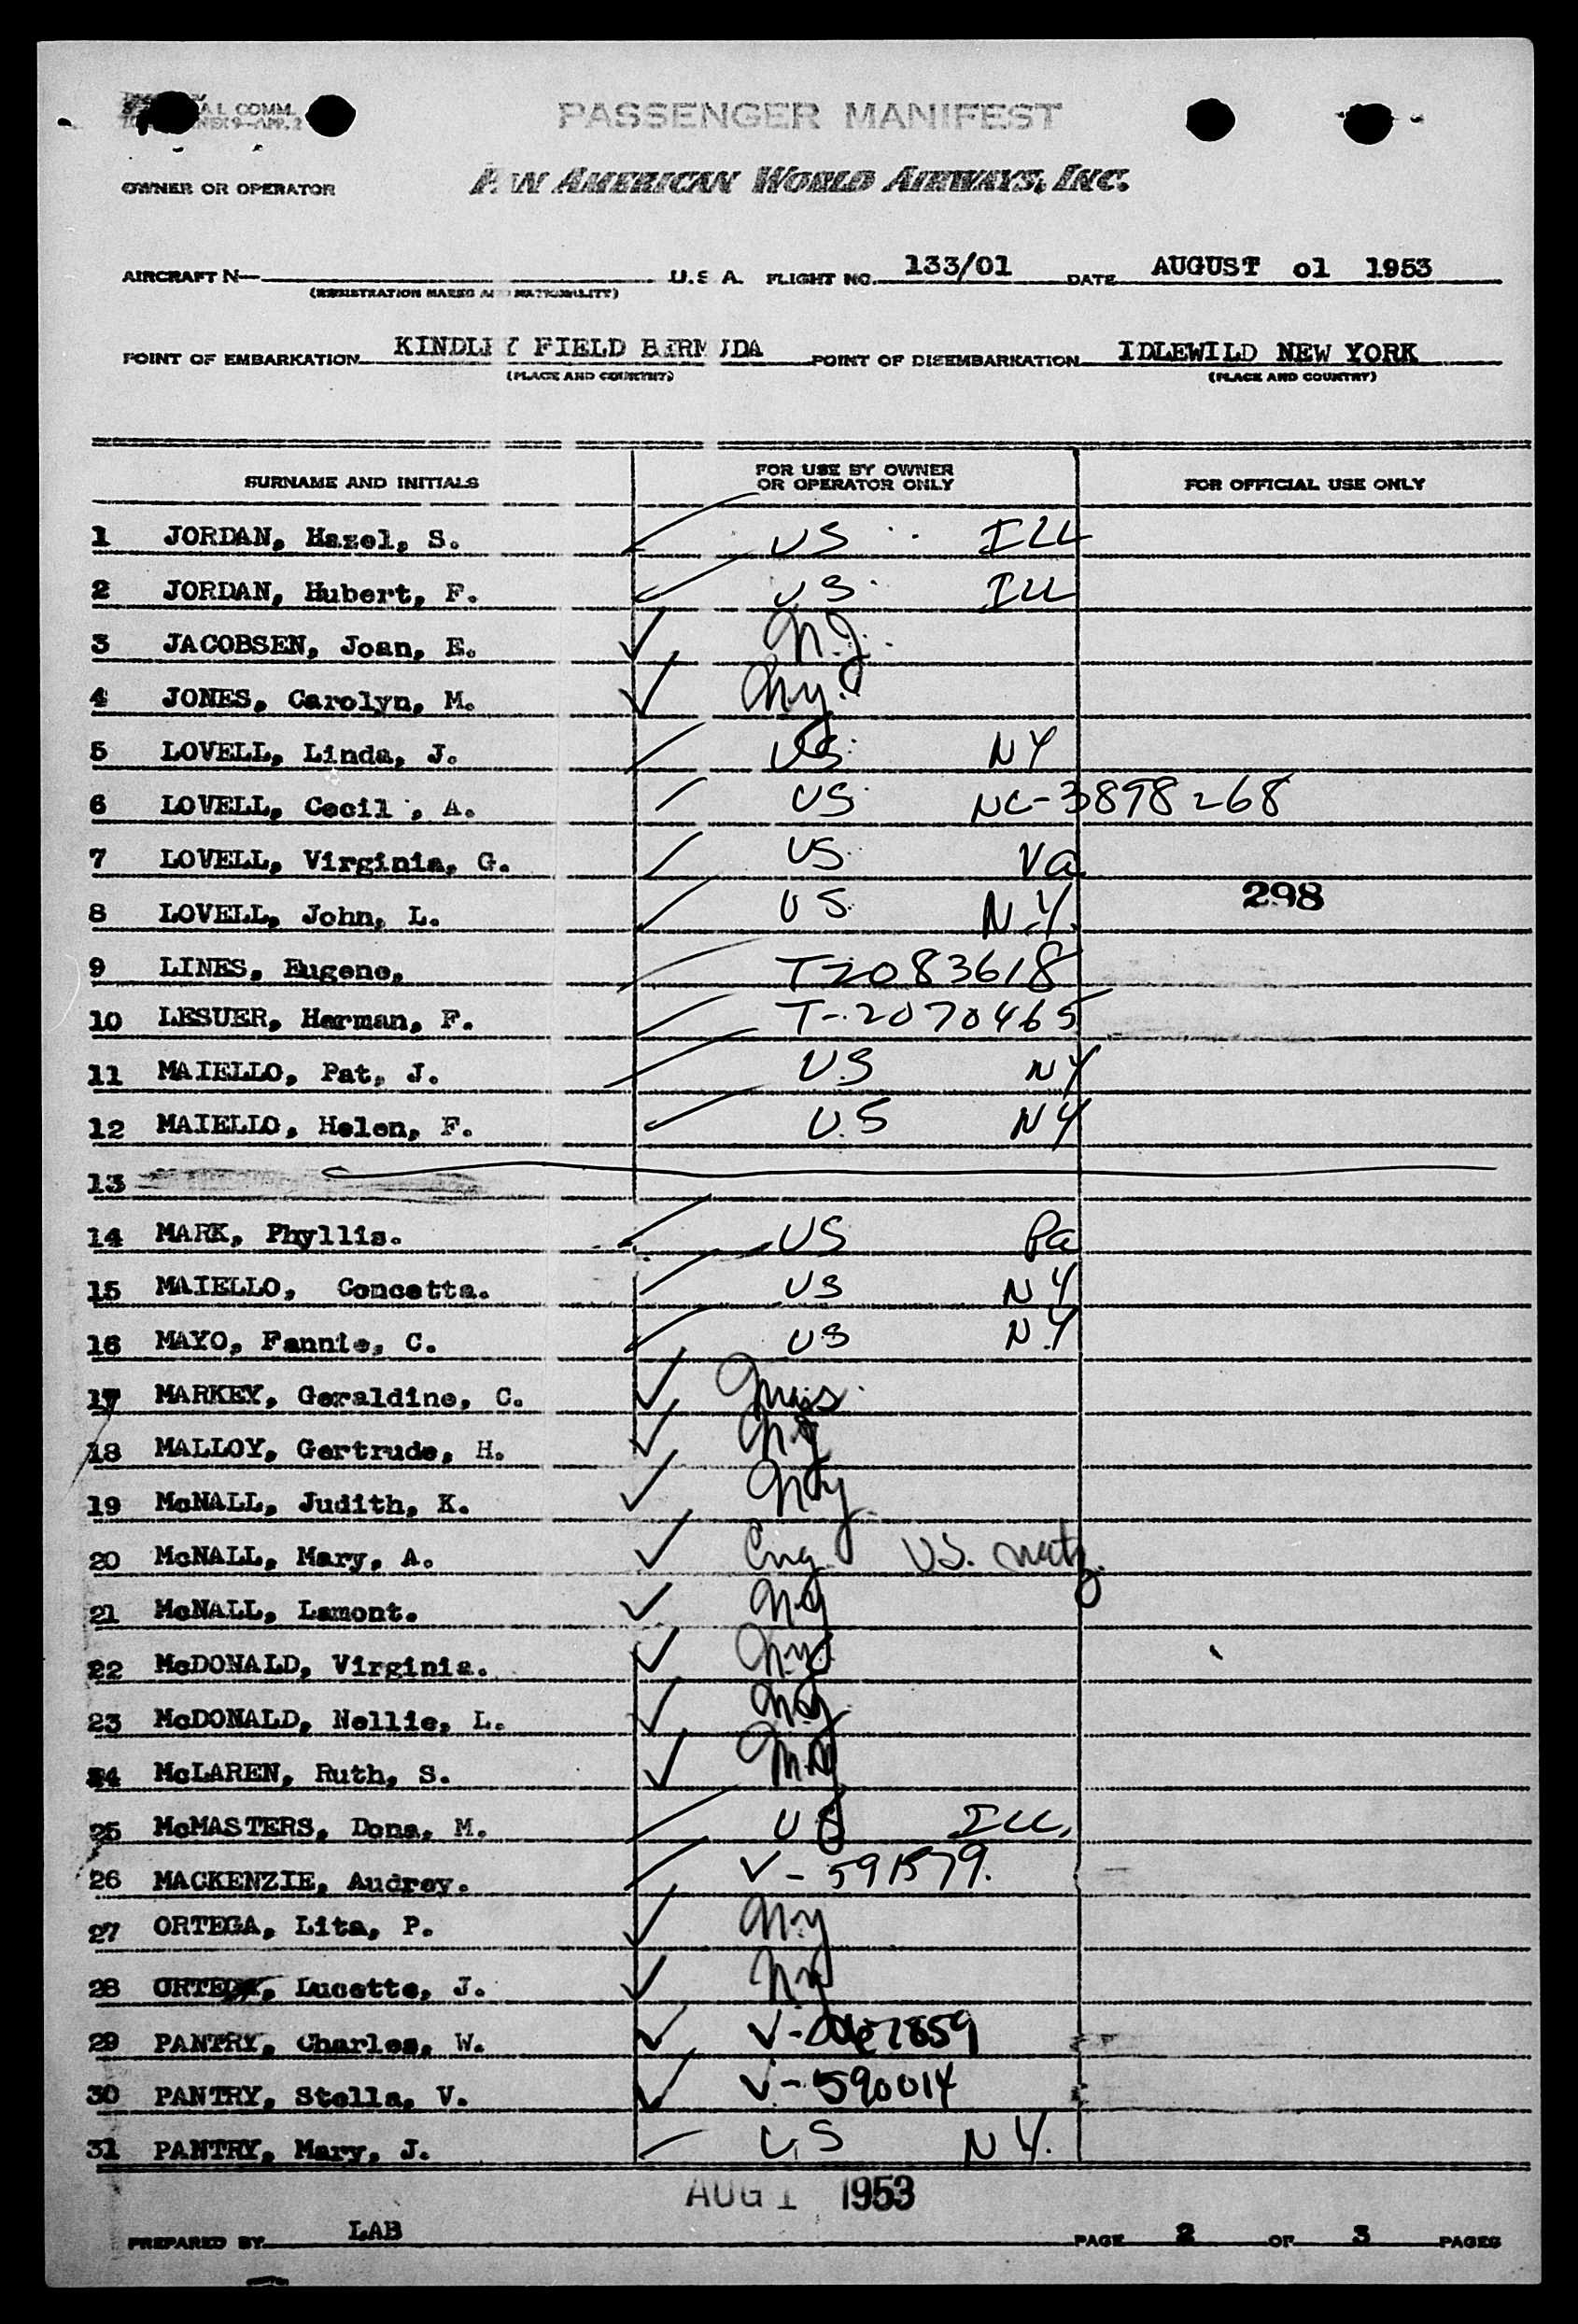 PASSENGER MANIFEST
PAN AMERICAN WORLD AIRWAYS, INC.
OWNER OR OPERATOR
AIRCRAFT N— U.S.A. FLIGHT NO. 133/01 DATE AUGUST 01 1953
(REGISTRATION MARKS AND NATIONALITY)
POINT OF EMBARKATION KINDLEY FIELD BERMUDA POINT OF DISEMBARKATION IDLEWILD NEW YORK
(PLACE AND COUNTRY) (PLACE AND COUNTRY)
SURNAME AND INITIALS FOR USE BY OWNER OR OPERATOR ONLY FOR OFFICIAL USE ONLY
1 JORDAN, Hazel, S. US ILL
2 JORDAN, Hubert, F. US ILL
3 JACOBSEN, Joan, E. N.J.
4 JONES, Carolyn, M. N.Y.
5 LOVELL, Linda, J. US NY
6 LOVELL, Cecil, A. US NC-3898268
7 LOVELL, Virginia, G. US Va
8 LOVELL, John, L. US N.Y. 298
9 LINES, Eugene, T2083618
10 LESUER, Herman, F. T-2070465
11 MAIELLO, Pat, J. U.S NY
12 MAIELLO, Helen, F. U.S NY
13
14 MARK, Phyllis. US Pa
15 MAIELLO, Concetta. US NY
16 MAYO, Fannie, C. US N.Y
17 MARKEY, Geraldine, C. Mass
18 MALLOY, Gertrude, H.
19 McNALL, Judith, K. N.Y
20 McNALL, Mary, A. Eng. US. natz.
21 McNALL, Lamont. N.Y
22 McDONALD, Virginia. N.Y.
23 McDONALD, Nellie, L.
24 McLAREN, Ruth, S.
25 McMASTERS, Dona, M. US ILL.
26 MACKENZIE, Audrey. V-591579.
27 ORTEGA, Lita, P. N.Y
28 ORTEGA, Lucette, J. N.Y
29 PANTRY, Charles, W.
30 PANTRY, Stella, V. V-590014
31 PANTRY, Mary, J. US NY.
AUG 1 1953
PREPARED BY LAB PAGE 2 OF 3 PAGES